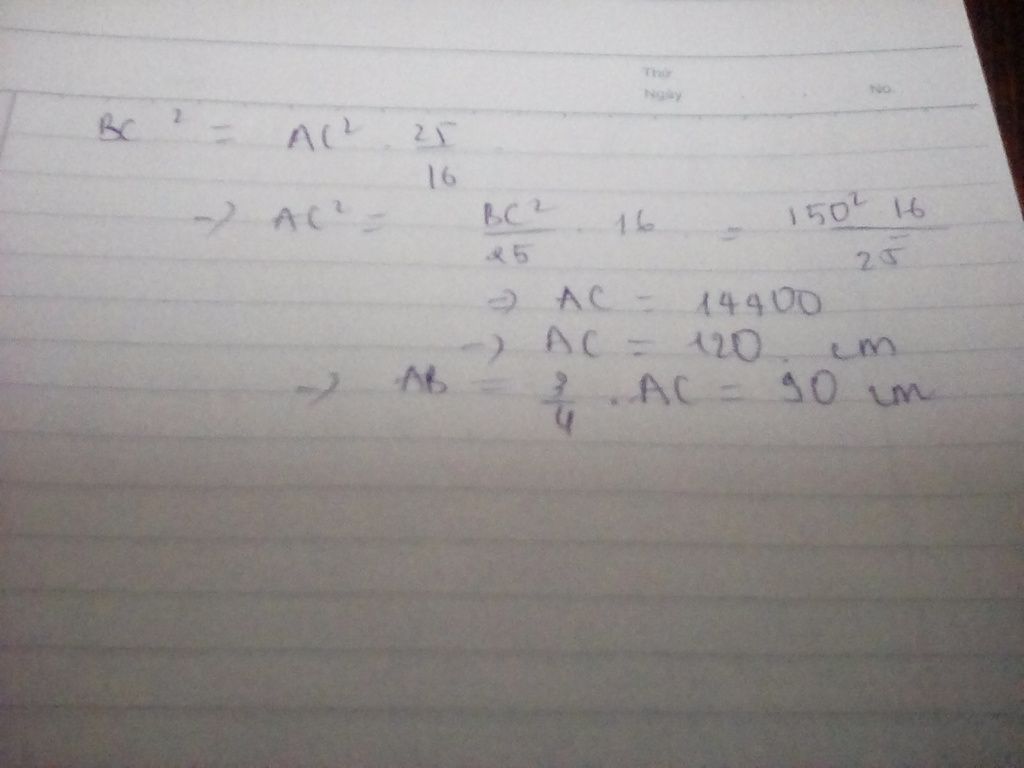 Thứ
Ngày No.
BC² = AC² . 25/16
→ AC² = BC²/25 . 16 = 150² 16/25
⇒ AC = 14400
→ AC = 120 . cm
→ AB = 3/4 . AC = 90 cm